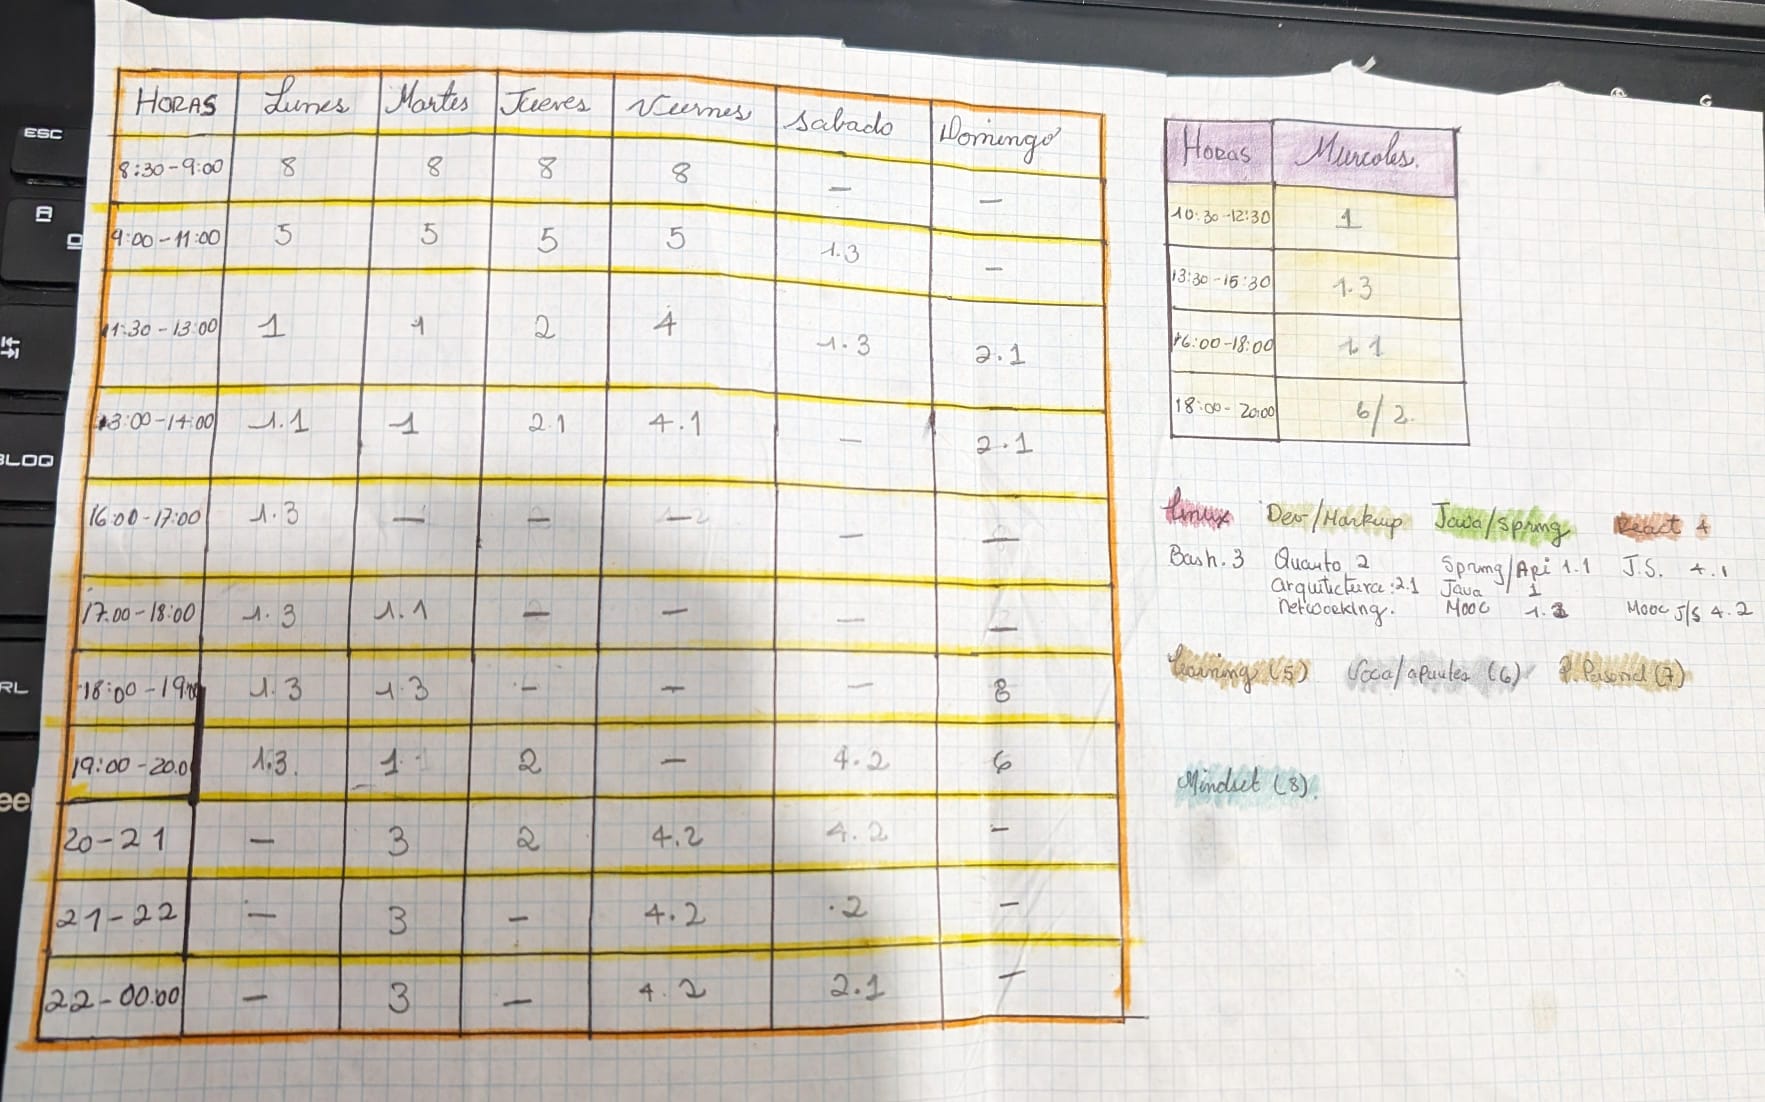 HORAS Lunes Martes Jueves Viernes Sabado Domingo
8:30-9:00 8 8 8 8 — —
9:00-11:00 5 5 5 5 1.3 —
11:30-13:00 1 1 2 4 1.3 2.1
13:00-14:00 1.1 1 2.1 4.1 — 2.1
16:00-17:00 1.3 — — — — —
17:00-18:00 1.3 1.1 — — — —
18:00-19:00 1.3 1.3 — — — 8
19:00-20:0 1.3. 1 2 — 4.2 6
20-21 — 3 2 4.2 4.2 —
21-22 — 3 — 4.2 .2 —
22-00:00 — 3 — 4.2 2.1 —
Horas Miercoles.
10:30-12:30 1
13:30-15:30 1.3
16:00-18:00 1.1
18:00-20:00 6/2.
Linux Dev/Markup Java/Spring React 4
Bash.3 Quanto 2 Spring/Api 1.1 J.S. 4.1
arquitectura:2.1 Java 1
networking. MOOC Mooc J/S 4.2
(5) /apuntes (6) P. Personal (7)
Mindset (8).
ESC
BLOQ
RL